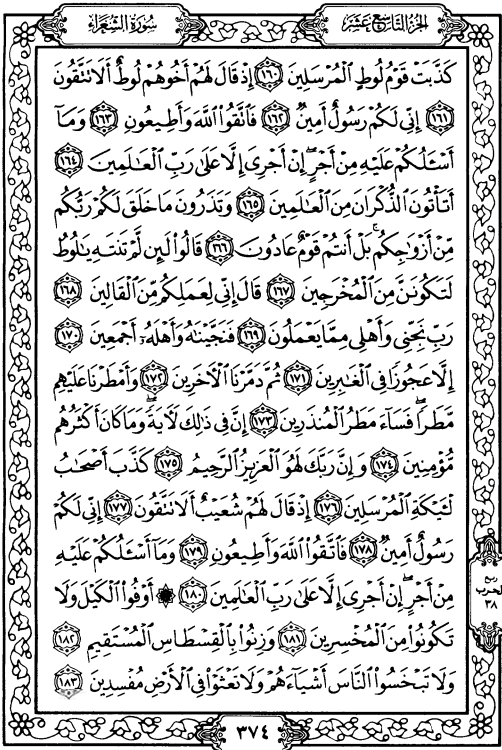 الجزء التاسع عشر
سورة الشعراء
كَذَّبَتْ قَوْمُ لُوطٍ ٱلْمُرْسَلِينَ ١٦٠ إِذْ قَالَ لَهُمْ أَخُوهُمْ لُوطٌ أَلَا تَتَّقُونَ
١٦١ إِنِّي لَكُمْ رَسُولٌ أَمِينٌ ١٦٢ فَٱتَّقُوا۟ ٱللَّهَ وَأَطِيعُونِ ١٦٣ وَمَآ
أَسْـَٔلُكُمْ عَلَيْهِ مِنْ أَجْرٍ إِنْ أَجْرِىَ إِلَّا عَلَىٰ رَبِّ ٱلْعَٰلَمِينَ ١٦٤
أَتَأْتُونَ ٱلذُّكْرَانَ مِنَ ٱلْعَٰلَمِينَ ١٦٥ وَتَذَرُونَ مَا خَلَقَ لَكُمْ رَبُّكُم
مِّنْ أَزْوَٰجِكُم بَلْ أَنتُمْ قَوْمٌ عَادُونَ ١٦٦ قَالُوا۟ لَئِن لَّمْ تَنتَهِ يَٰلُوطُ
لَتَكُونَنَّ مِنَ ٱلْمُخْرَجِينَ ١٦٧ قَالَ إِنِّى لِعَمَلِكُم مِّنَ ٱلْقَالِينَ ١٦٨
رَبِّ نَجِّنِى وَأَهْلِى مِمَّا يَعْمَلُونَ ١٦٩ فَنَجَّيْنَٰهُ وَأَهْلَهُۥٓ أَجْمَعِينَ ١٧٠
إِلَّا عَجُوزًا فِى ٱلْغَٰبِرِينَ ١٧١ ثُمَّ دَمَّرْنَا ٱلْءَاخَرِينَ ١٧٢ وَأَمْطَرْنَا عَلَيْهِم
مَّطَرًا فَسَآءَ مَطَرُ ٱلْمُنذَرِينَ ١٧٣ إِنَّ فِى ذَٰلِكَ لَءَايَةً وَمَا كَانَ أَكْثَرُهُم
مُّؤْمِنِينَ ١٧٤ وَإِنَّ رَبَّكَ لَهُوَ ٱلْعَزِيزُ ٱلرَّحِيمُ ١٧٥ كَذَّبَ أَصْحَٰبُ
لْـَٔيْكَةِ ٱلْمُرْسَلِينَ ١٧٦ إِذْ قَالَ لَهُمْ شُعَيْبٌ أَلَا تَتَّقُونَ ١٧٧ إِنِّى لَكُمْ
رَسُولٌ أَمِينٌ ١٧٨ فَٱتَّقُوا۟ ٱللَّهَ وَأَطِيعُونِ ١٧٩ وَمَآ أَسْـَٔلُكُمْ عَلَيْهِ
مِنْ أَجْرٍ إِنْ أَجْرِىَ إِلَّا عَلَىٰ رَبِّ ٱلْعَٰلَمِينَ ١٨٠ ۞ أَوْفُوا۟ ٱلْكَيْلَ وَلَا
تَكُونُوا۟ مِنَ ٱلْمُخْسِرِينَ ١٨١ وَزِنُوا۟ بِٱلْقِسْطَاسِ ٱلْمُسْتَقِيمِ ١٨٢
وَلَا تَبْخَسُوا۟ ٱلنَّاسَ أَشْيَآءَهُمْ وَلَا تَعْثَوْا۟ فِى ٱلْأَرْضِ مُفْسِدِينَ ١٨٣
ربع
الحزب
٣٨
٣٧٤